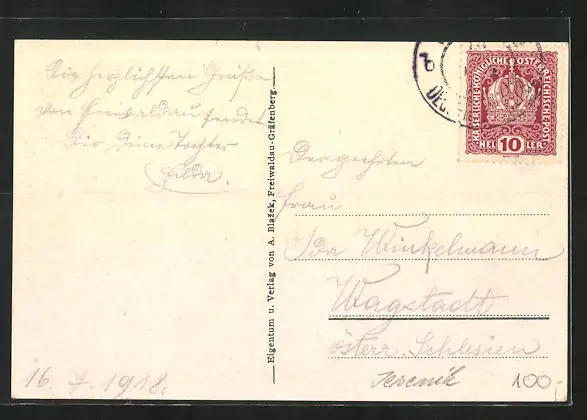 Die herzlichsten Grüße
von Freiwaldau sendet
Dir deine Tochter
Hilda.
16. 7. 1918.
Eigentum u. Verlag von A. Blažek, Freiwaldau-Gräfenberg.
KAISERLICHE KÖNIGLICHE ÖSTERREICHISCHE POST
HELLER 10
Der geehrten
Frau
Ida Winkelmann
Wagstadt
österr. Schlesien
Jeseník 100-